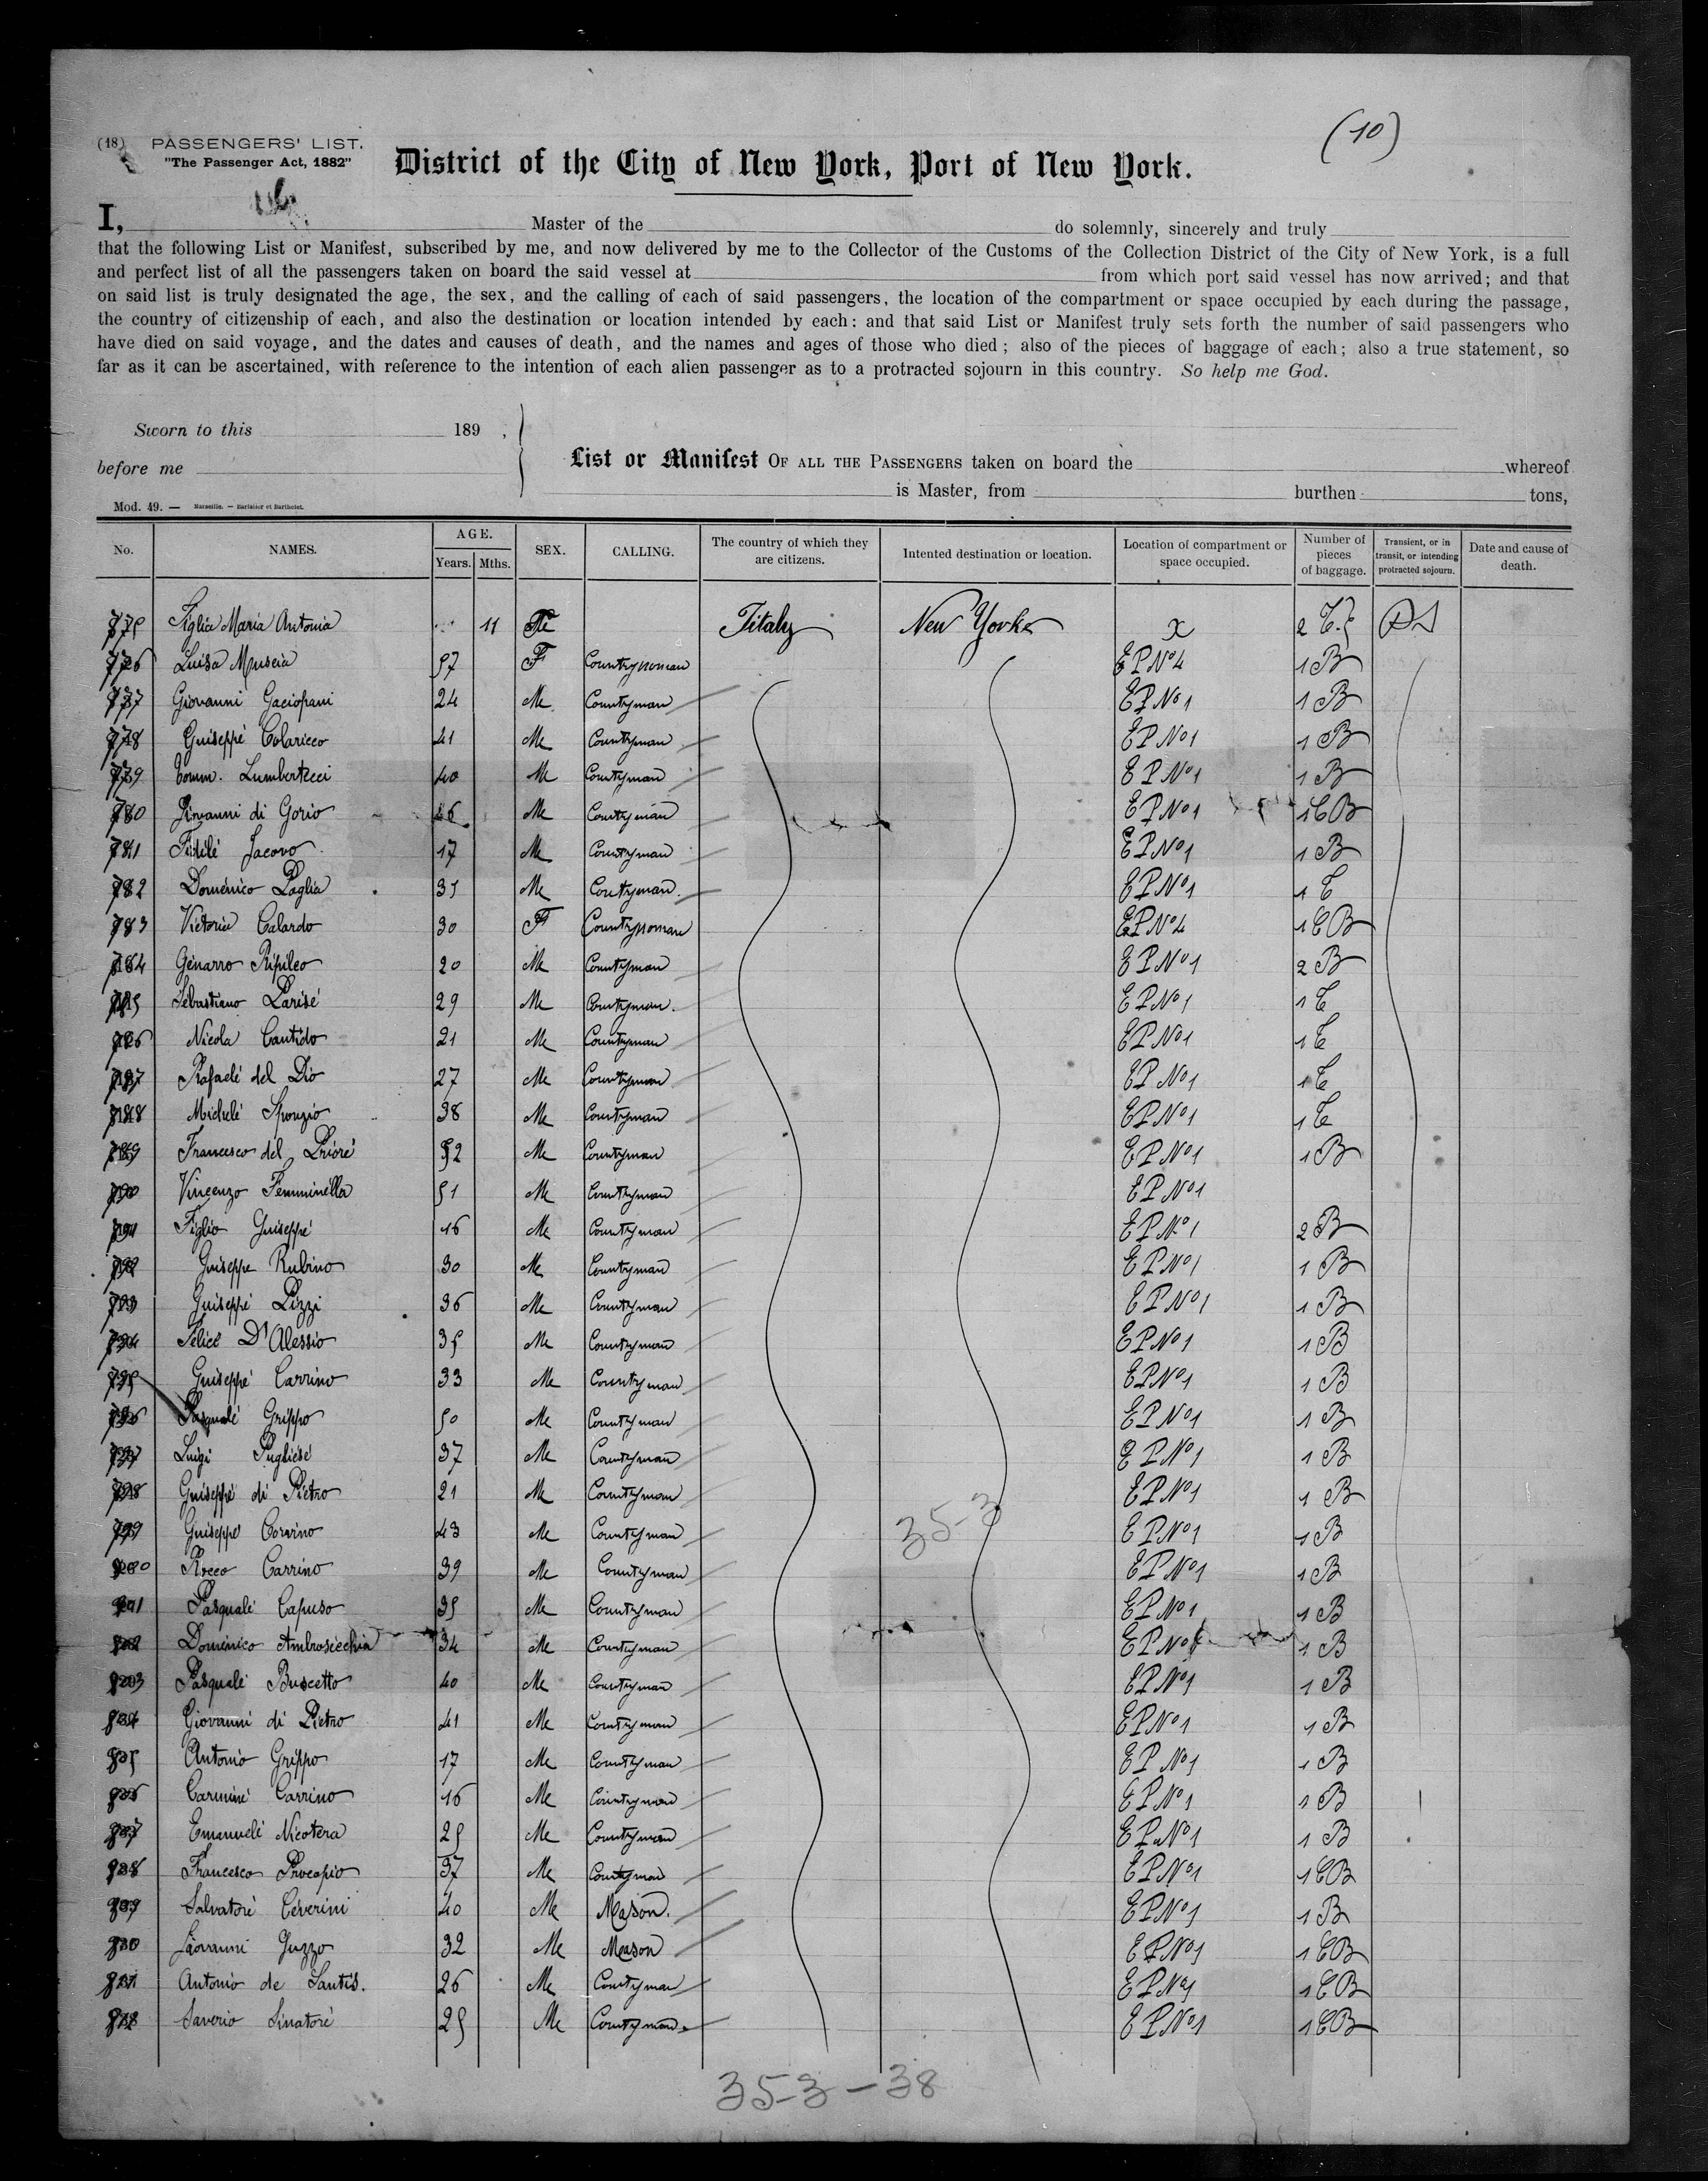 (10)
(18) PASSENGERS' LIST.
"The Passenger Act, 1882"
District of the City of New York, Port of New York.
I, Master of the do solemnly, sincerely and truly
that the following List or Manifest, subscribed by me, and now delivered by me to the Collector of the Customs of the Collection District of the City of New York, is a full
and perfect list of all the passengers taken on board the said vessel at from which port said vessel has now arrived; and that
on said list is truly designated the age, the sex, and the calling of each of said passengers, the location of the compartment or space occupied by each during the passage,
the country of citizenship of each, and also the destination or location intended by each: and that said List or Manifest truly sets forth the number of said passengers who
have died on said voyage, and the dates and causes of death, and the names and ages of those who died; also of the pieces of baggage of each; also a true statement, so
far as it can be ascertained, with reference to the intention of each alien passenger as to a protracted sojourn in this country. So help me God.
Sworn to this 189 ,
before me
List or Manifest OF ALL THE PASSENGERS taken on board the whereof
is Master, from burthen tons,
Mod. 49. —
No. NAMES. AGE. Years. Mths. SEX. CALLING. The country of which they are citizens. Intented destination or location. Location of compartment or space occupied. Number of pieces of baggage. Transient, or in transit, or intending protracted sojourn. Date and cause of death.
Figlia Maria Antonia 11 Fe Titaly New York x 2
Luisa Muscia 57 F Countrywoman E P No 4 1 B
Giovanni 24 Me Countryman E P No 1 1 B
778 Guiseppé Colaricco 41 Me Countryman E P No 1 1 B
779 Tomm. 40 Me Countryman E P No 1 1 B
780 Giovanni di Gorio 46 Me Countryman E P No 1 1 C B
781 Fidilé Jacovo 17 Me Countryman E P No 1 1 B
782 Domenico Paglia 35 Me Countryman. E P No 1 1 C
783 Victoria Calardo 30 F Countrywoman E P No 4 1 C B
784 Genarro 20 Me Countryman E P No 1 2 B
785 Sebastiano Parisé 29 Me Countryman. E P No 1 1 C
786 Nicola Cantido 21 Me Countryman E P No 1 1 C
787 Rafaelé del Dio 27 Me Countryman E P No 1 1 C
788 Michelé Sponzio 38 Me Countryman E P No 1 1 C
789 Francesco del Prioré 52 Me Countryman E P No 1 1 B
790 Vincenzo Femminella 51 Me Countryman E P No 1
791 Figlio Guiseppé 16 Me Countryman E P No 1 2 B
792 Guiseppe Rubino 30 Me Countryman E P No 1 1 B
793 Guiseppé Pizzi 36 Me Countryman E P No 1 1 B
794 Felice D'Alessio 35 Me Countryman E P No 1 1 B
795 Guiseppé Carrino 33 Me Countryman E P No 1 1 B
796 Pasqualé Grippo 50 Me Countryman E P No 1 1 B
797 Luigi Pugliesé 37 Me Countryman E P No 1 1 B
798 Guiseppé di Pietro 21 Me Countryman E P No 1 1 B
799 Guiseppé Corvino 43 Me Countryman 35-3 E P No 1 1 B
800 Rocco Carrino 39 Me Countryman E P No 1 1 B
801 Pasqualé Capuso 35 Me Countryman E P No 1 1 B
802 Domenico Ambrosecchia 34 Me Countryman E P No 1 1 B
803 Pasqualé Buscetto 40 Me Countryman E P No 1 1 B
804 Giovanni di Pietro 41 Me Countryman E P No 1 1 B
805 Antonio Grippo 17 Me Countryman E P No 1 1 B
806 Carminé Carrino 16 Me Countryman E P No 1 1 B
807 Emanuelé Nicotera 25 Me Countryman E P No 1 1 B
808 Francesco Procopio 37 Me Countryman E P No 1 1 C B
809 Salvatoré Ceverini 40 Me Mason. E P No 1 1 B
810 Giovanni Guzzo 32 Me Mason E P No 1 1 C B
811 Antonio de Santis. 26 Me Countryman E P No 1 1 C B
812 Saverio Sinatoré 25 Me Countryman. E P No 1 1 C B
353 - 38